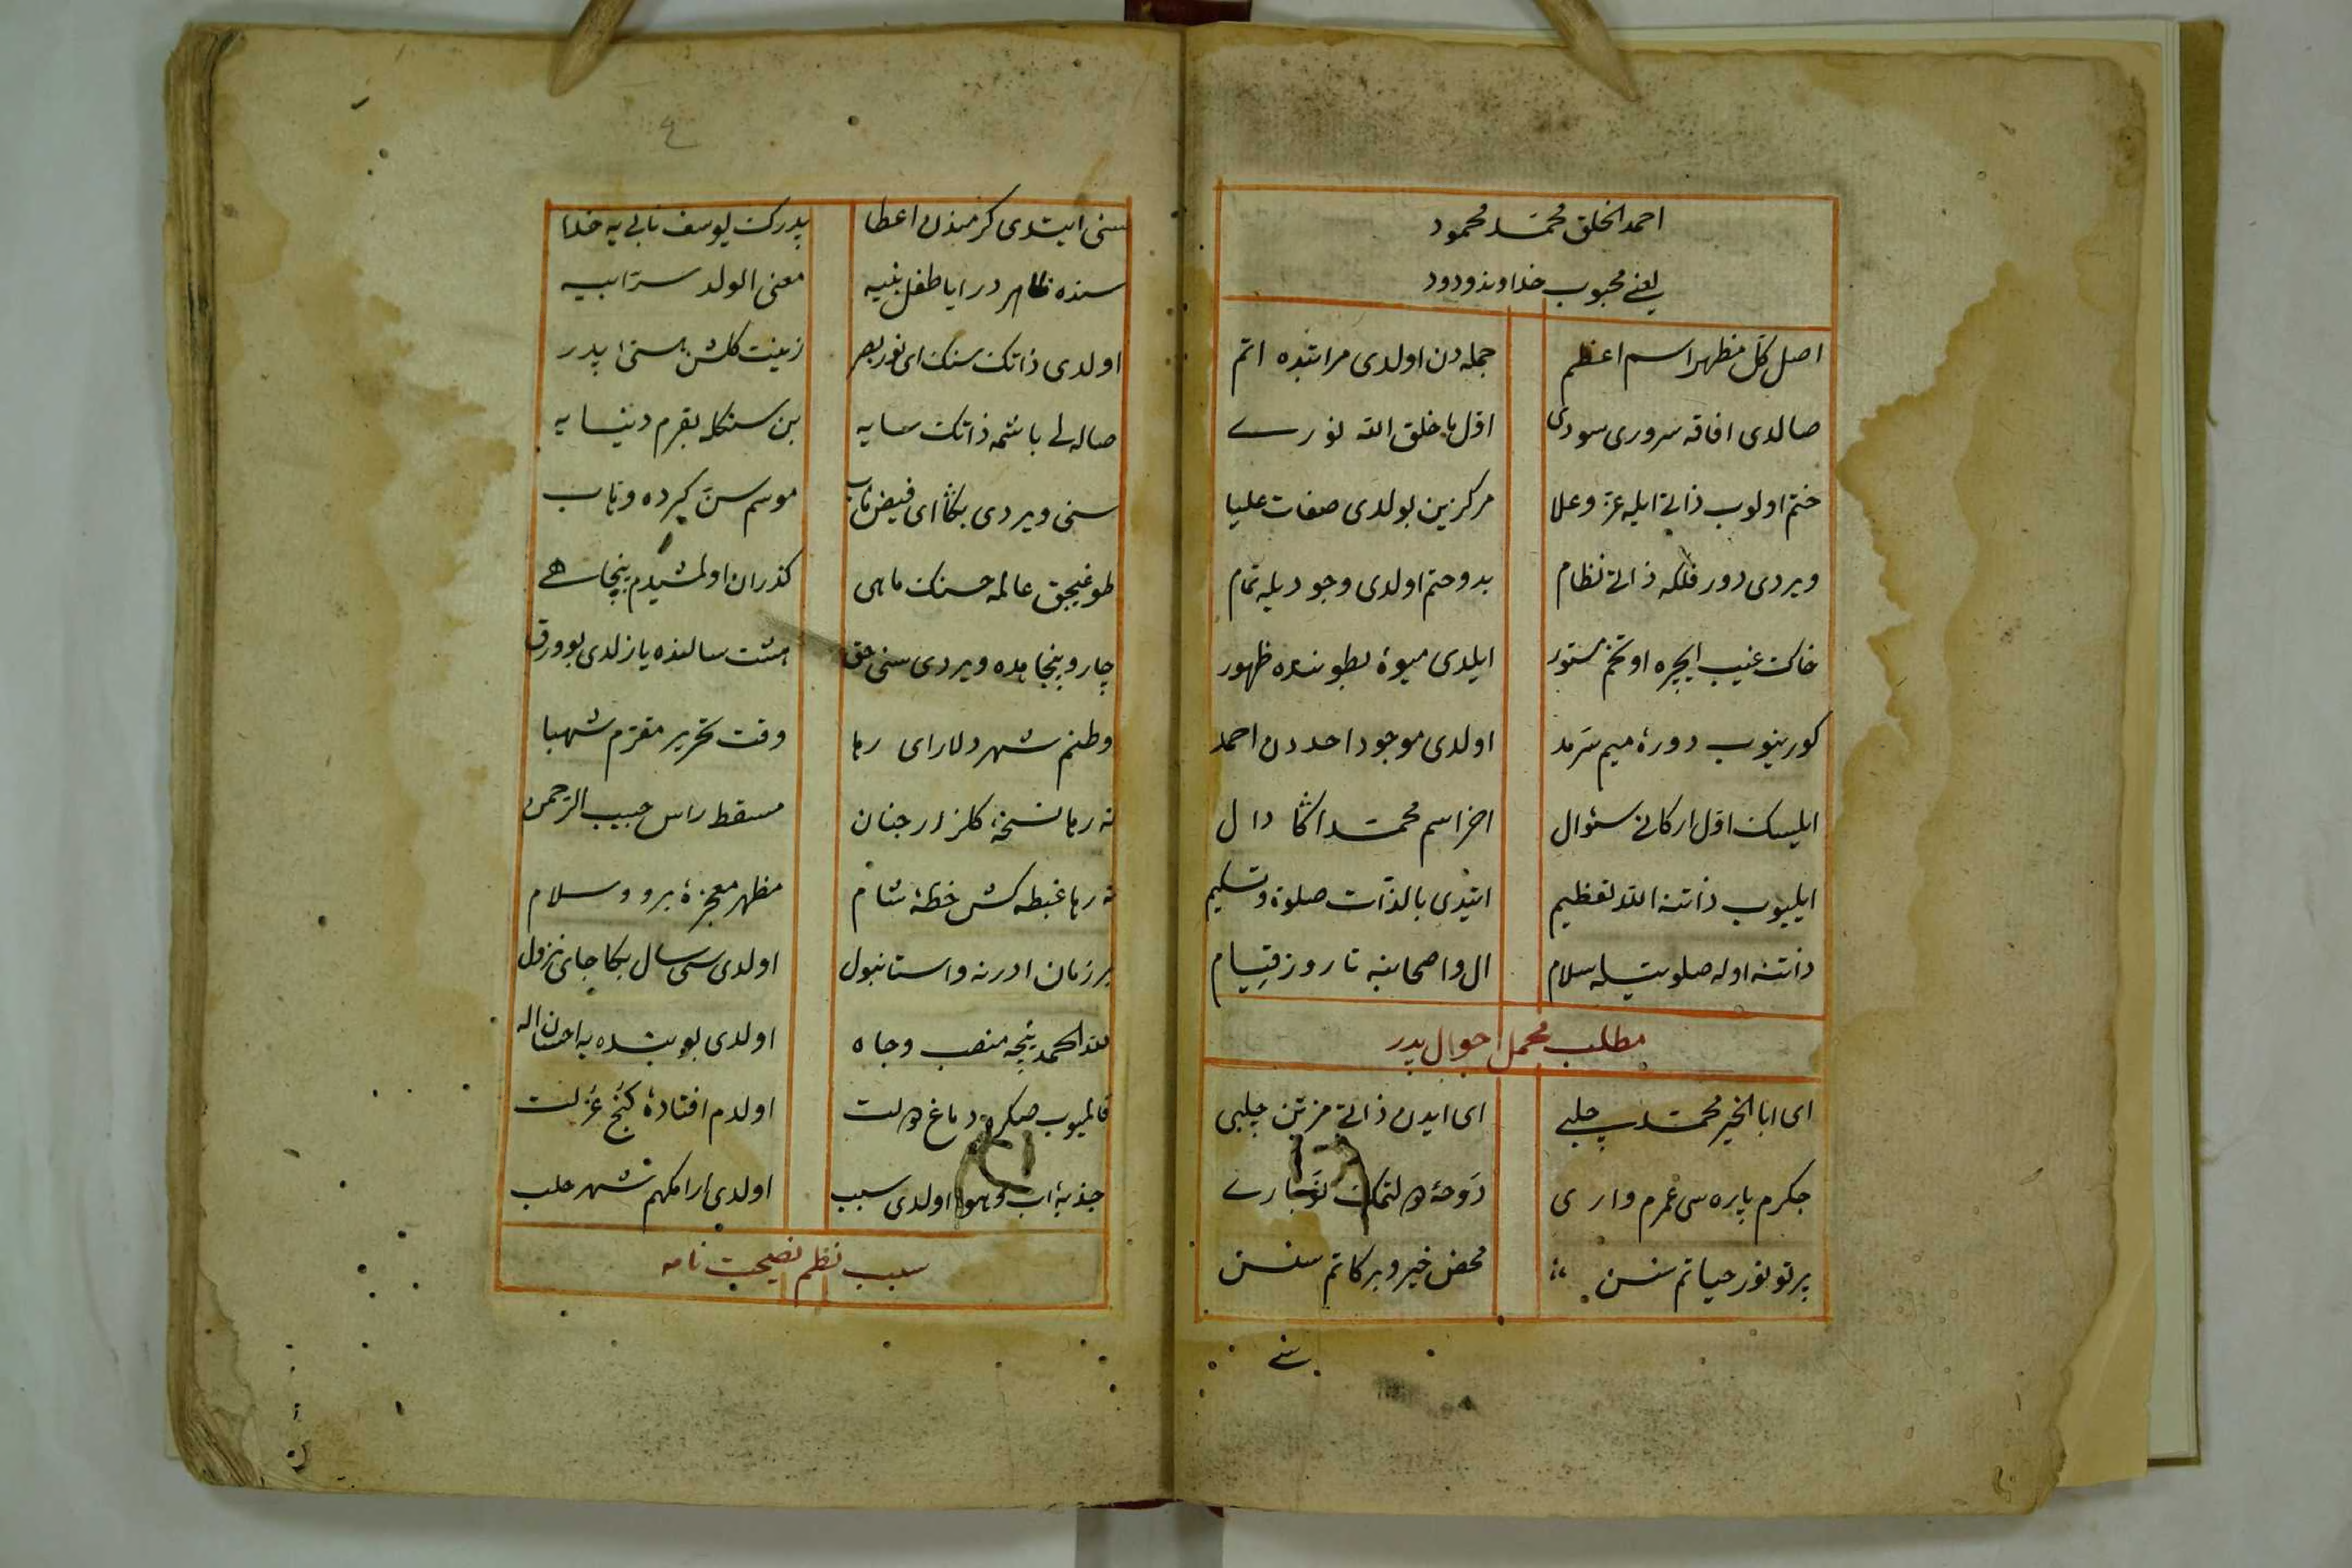 احمد الخلق محمد محمود
يعنى محبوب خداوند ودود
اصل كل مظهر اسم اعظم جمله‌دن اولدى مراتبده اتم
صالدى افاقه سرورى سودى اول ما خلق الله نورے
ختم اولوب ذاتى ايله عز و علا مركزين بولدى صفات عليا
ويردى دور فلكه ذاتى نظام بدو وختم اولدى وجوديله تمام
خاك غيب ايچره او تخم مستور ايلدى ميوۀ بطوننده ظهور
كورينوب دورۀ ميم سرمد اولدى موجود احددن احمد
ايليسك اول اركانى سئوال اخر اسم محمد اكا دال
ايليوب ذاتنه الله تعظيم ايتدى بالذات صلوة وتسليم
ذاتنه اوله صلوتيله سلام ال واصحابنه تا روز قيام
مطلب مجمل احوال پدر
اى ابا الخير محمد چلبے اى ايدن ذاتى مزين چلبى
جكرم پاره‌سى عمرم وارى دوحۀ دولتمك نوبارے
پرتو نور حياتم سنسن محض خير و بركاتم سنسن
سنى
سنى ايتدى كرمندن اعطا پدرك يوسف نابى‌يه خدا
سنده ظاهر در ايا طفل نبيه معنى الولد سر ابيه
اولدى ذاتك سنك اى نور بصر زينت كلشن هستى پدر
صاله‌لى باشمه ذاتك سايه بن سنكله بقرم دنيايه
سنى ويردى بكا اى فيض ماب موسم سن كه ده وهاب
طوغيجق عالمه حسنك ماهى كذران اولمشيدم پنجاهے
چار و پنجامده ويردى سنى حق هشت سالنده يازلدى بو ورق
وطنم شهر دلاراى رها وقت تحرير مقرم شهبا
نه رها نسخۀ كلزار جنان مسقط راس حبيب الرحمن
نه رها غبطه كش خطۀ شام مظهر معجزۀ برد وسلام
بر زمان ادرنه و استانبول اولدى سى سال بكا جاى نزول
لله الحمد نيجه منصب وجاه اولدى بو بنده‌يه احسان اله
قالميوب صكره دماغ دولت اولدم افتادۀ كنج عزلت
جذبۀ اب وهوا اولدى سبب اولدى ارامكهم شهر حلب
سبب نظم نصيحت نامه